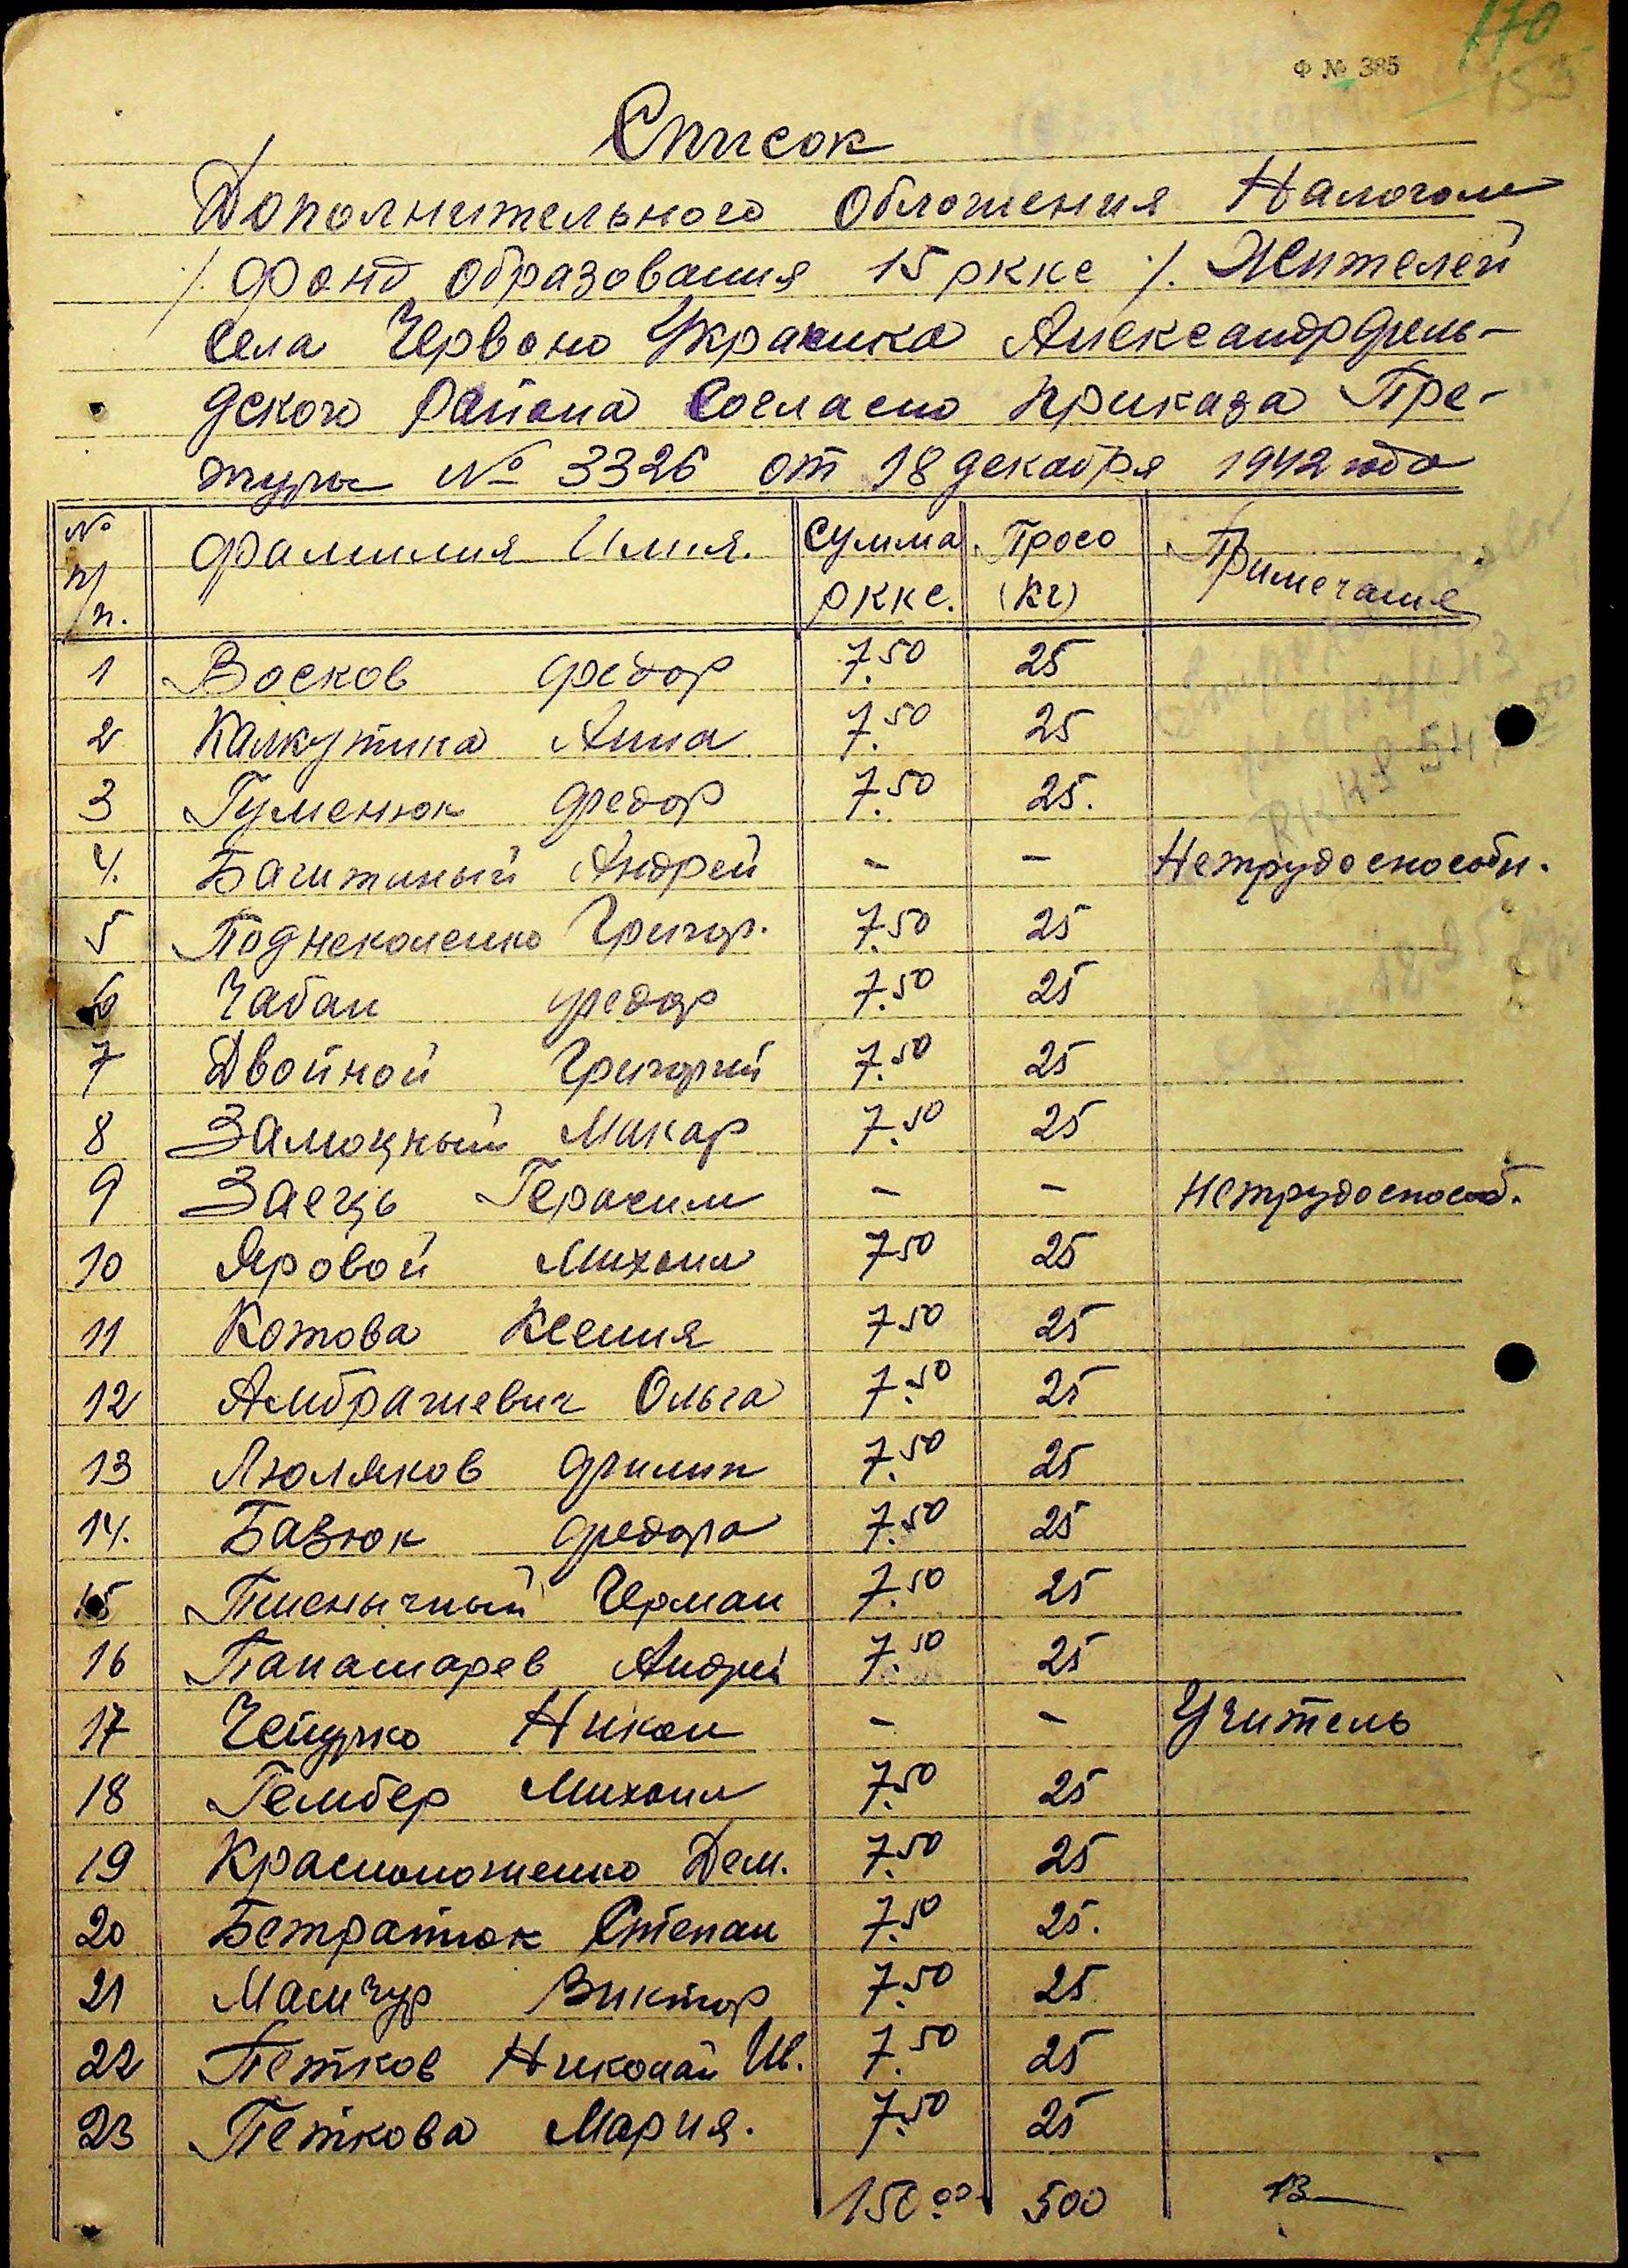 170
Ф № 385
153
Список
Дополнительного Обложения Налогом
/. Фонд образования 15 рккс /. Жителей
села Червоно Украинка Александрфель-
дского района Согласно приказа Пре-
туры № 3326 от 18 декабря 1942 года
№ п/п. Фамилия Имия. Сумма рккс. Просо (кг) Примечание
1 Восков Федор 7.50 25
2 Калкутина Анна 7.50 25
3 Гуменюк Федор 7.50 25.
4. Андрей - - Нетрудоспособн.
5 Григор. 7.50 25
6 Чабан Федор 7.50 25
7 Двойной Григорий 7.50 25
8 Замоцный Макар 7.50 25
9 Заець Герасим - - Нетрудоспособ.
10 Яровой Михаил 7.50 25
11 Котова Ксения 7.50 25
12 Амбражевич Ольга 7.50 25
13 Люляков Филип 7.50 25
14. Базюк Федора 7.50 25
15 Пшеничный Герман 7.50 25
16 Панамарев Андрей 7.50 25
17 Чепурко Никон - - Учитель
18 Гембер Михаил 7.50 25
19 Красноноженко Дем. 7.50 25
20 Бетратюк Степан 7.50 25.
21 Мамчур Виктор 7.50 25
22 Петков Николай Ив. 7.50 25
23 Петкова Мария. 7.50 25
150.00 500